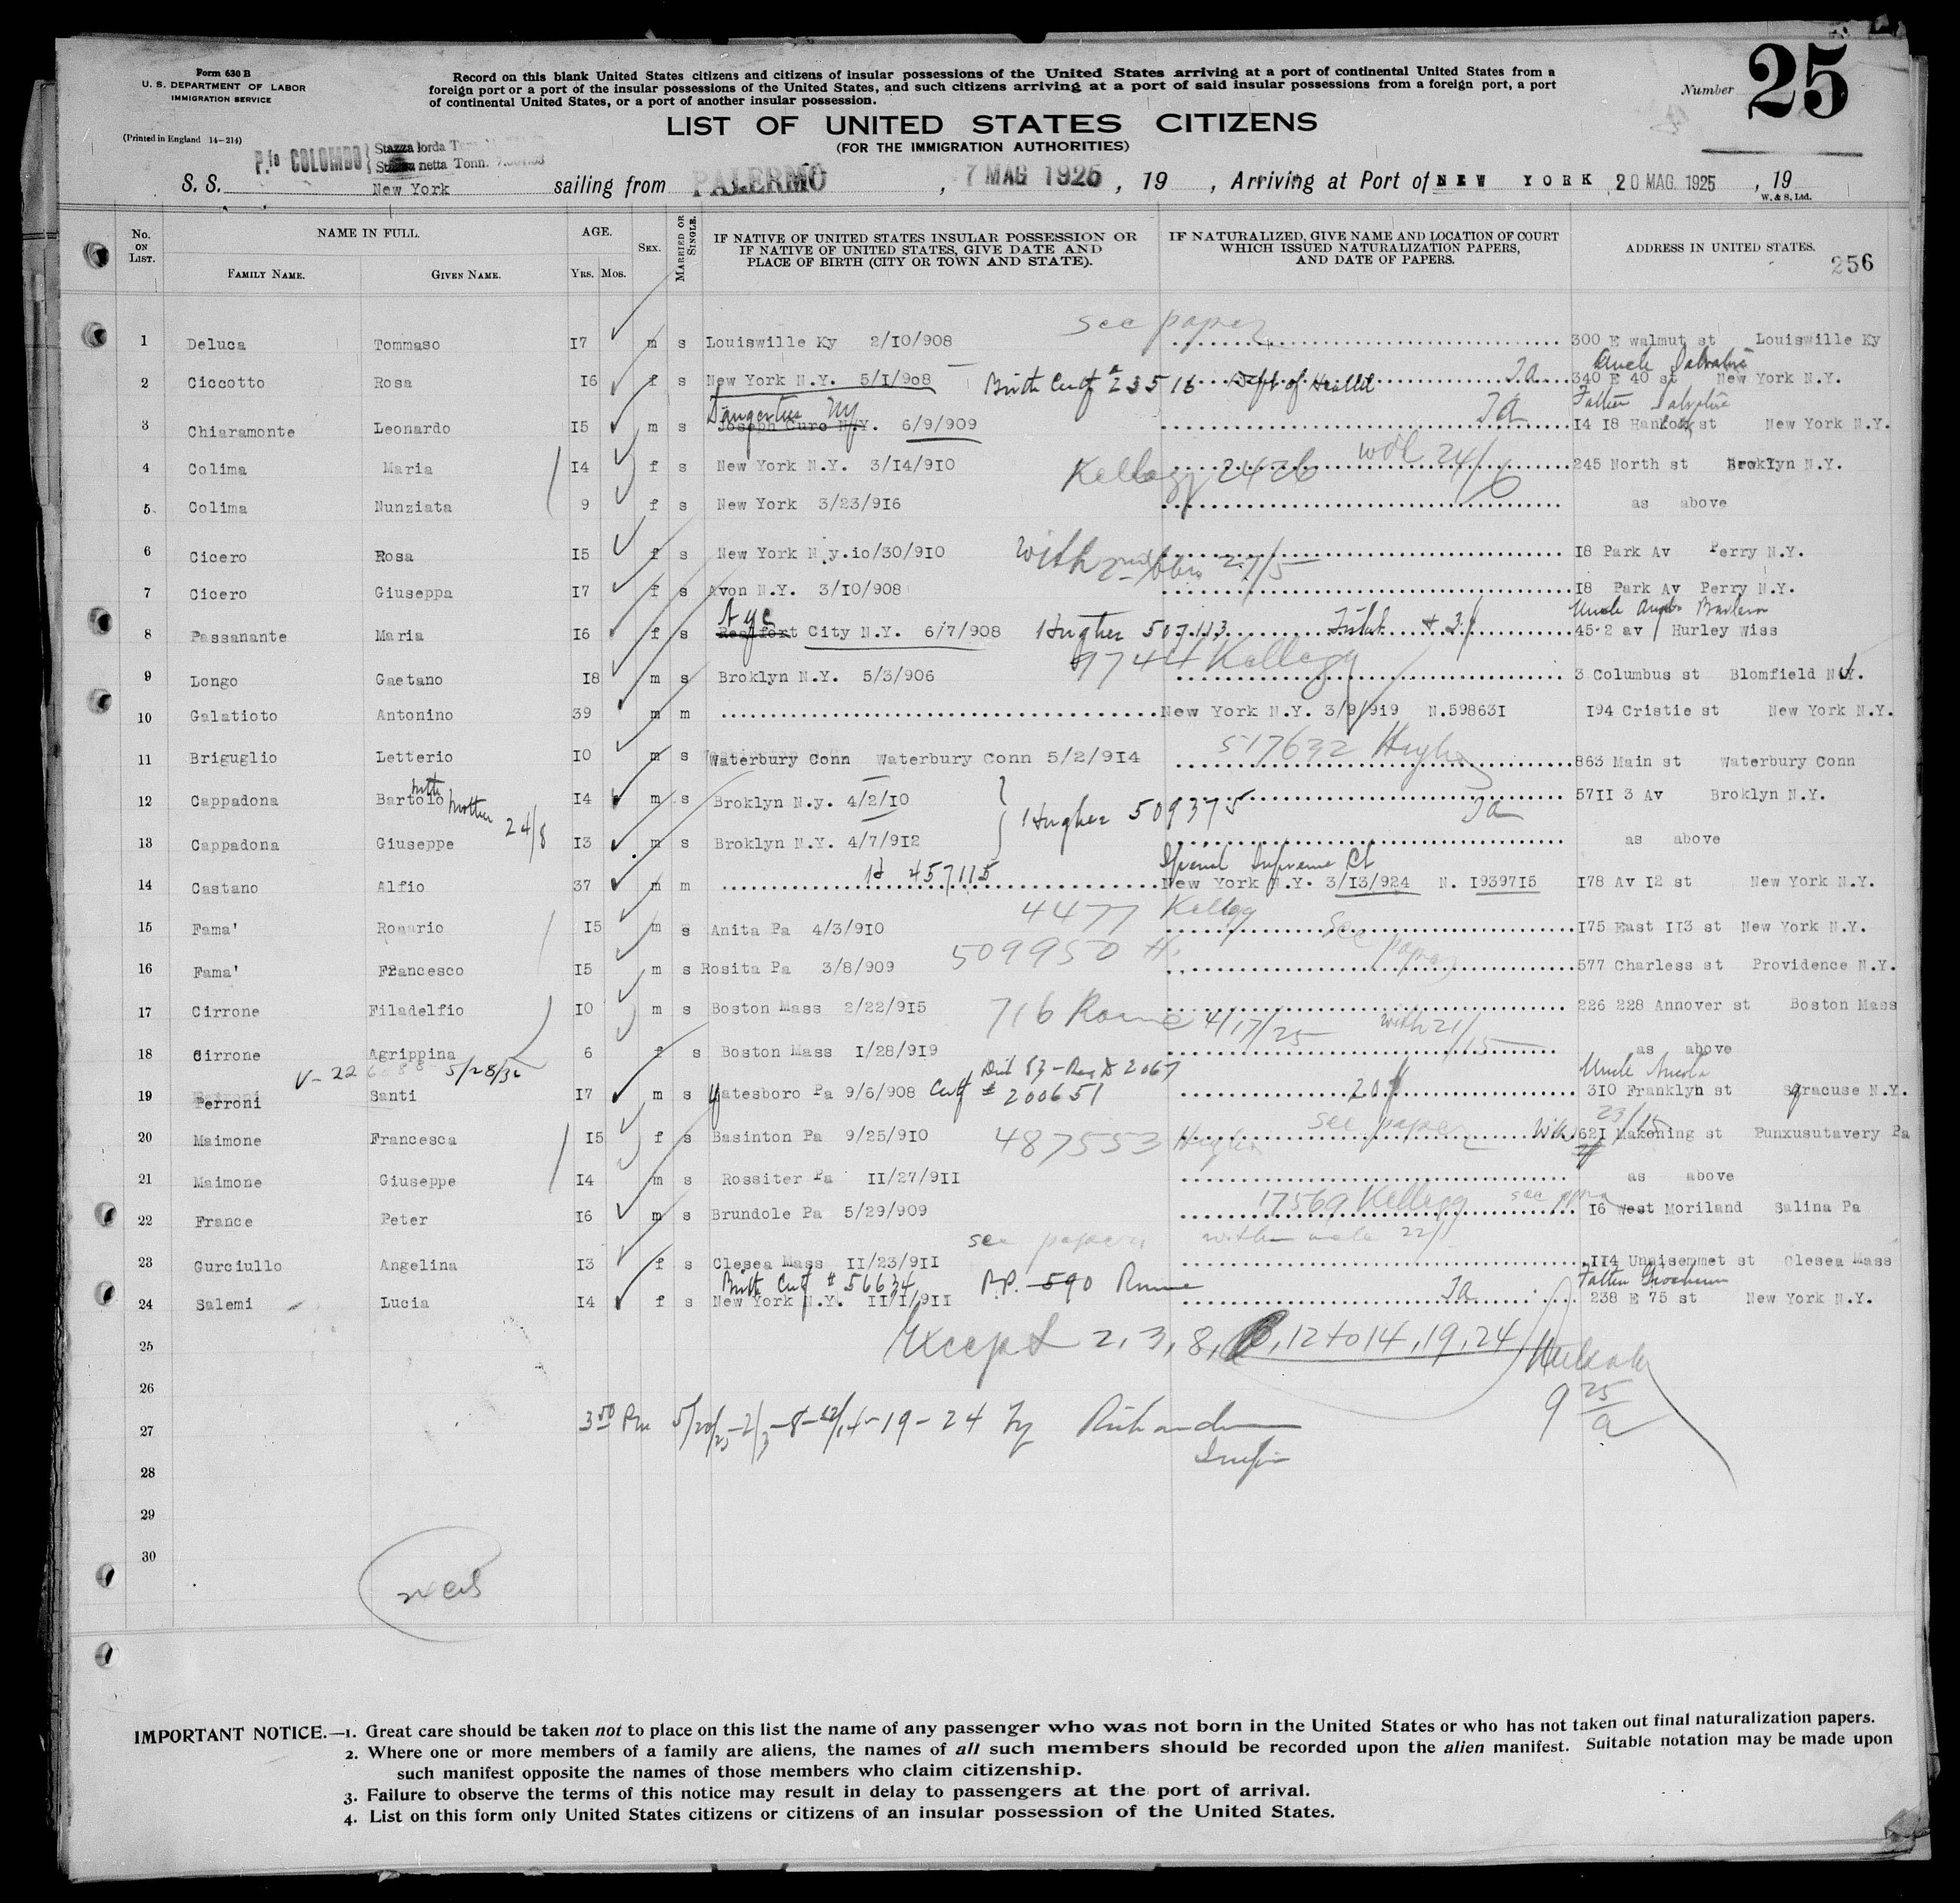 Form 630 B
U. S. DEPARTMENT OF LABOR
IMMIGRATION SERVICE
(Printed in England 14—214)
Record on this blank United States citizens and citizens of insular possessions of the United States arriving at a port of continental United States from a
foreign port or a port of the insular possessions of the United States, and such citizens arriving at a port of said insular possessions from a foreign port, a port
of continental United States, or a port of another insular possession.
Number 25
LIST OF UNITED STATES CITIZENS
(FOR THE IMMIGRATION AUTHORITIES)
P.fo COLOMBO Stazza lorda
netta Tonn.
S. S. New York sailing from PALERMO, 7 MAG 1925, 19 , Arriving at Port of NEW YORK 20 MAG. 1925, 19
W. & S. Ltd.
No. ON LIST. NAME IN FULL. FAMILY NAME. GIVEN NAME. AGE. YRS. MOS. SEX. MARRIED OR SINGLE. IF NATIVE OF UNITED STATES INSULAR POSSESSION OR IF NATIVE OF UNITED STATES, GIVE DATE AND PLACE OF BIRTH (CITY OR TOWN AND STATE). IF NATURALIZED, GIVE NAME AND LOCATION OF COURT WHICH ISSUED NATURALIZATION PAPERS, AND DATE OF PAPERS. ADDRESS IN UNITED STATES.
256
see paper
1 Deluca Tommaso I7 m s Louiswille Ky 2/I0/908 300 E walmut st Louiswille Ky
Uncle Salvatore
2 Ciccotto Rosa I6 f s New York N.Y. 5/I/908 Birth Certf # 23516 Dept of Health 340 E 40 st New York N.Y.
Father Salvatore
3 Chiaramonte Leonardo I5 m s 6/9/909 I4 I8 st New York N.Y.
4 Colima Maria I4 f s New York N.Y. 3/I4/9I0 Kellogg 2426 24/6 245 North st Broklyn N.Y.
5 Colima Nunziata 9 f s New York 3/23/9I6 as above
6 Cicero Rosa I5 f s New York N.y.io/30/9I0 with 27/5 I8 Park Av Perry N.Y.
7 Cicero Giuseppa I7 f s Avon N.Y. 3/I0/908 I8 Park Av Perry N.Y.
Nyc
Uncle
8 Passanante Maria I6 f s City N.Y. 6/7/908 Hughes 507113 45-2 av Hurley Wiss
9744 Kellogg
9 Longo Gaetano I8 m s Broklyn N.Y. 5/3/906 3 Columbus st Blomfield N.J.
10 Galatioto Antonino 39 m m New York N.Y. 3/9/9i9 N.59863I I94 Cristie st New York N.Y.
11 Briguglio Letterio I0 m s Waterbury Conn Waterbury Conn 5/2/9I4 517632 Hughes 863 Main st Waterbury Conn
with mother 24/8
12 Cappadona Bartolo I4 m s Broklyn N.y. 4/2/I0 Hughes 509375 57II 3 Av Broklyn N.Y.
13 Cappadona Giuseppe I3 m s Broklyn N.Y. 4/7/9I2 as above
457115 Supreme Ct
14 Castano Alfio 37 m m New York N.Y. 3/I3/924 N. I9397I5 I78 Av I2 st New York N.Y.
4477 Kellogg see paper
15 Fama' Rosario I5 m s Anita Pa 4/3/9I0 I75 East II3 st New York N.Y.
509950 H.
16 Fama' Francesco I5 m s Rosita Pa 3/8/909 577 Charless st Providence N.Y.
17 Cirrone Filadelfio I0 m s Boston Mass 2/22/9I5 716 Rome 4/17/25 with 21/15 226 228 Annover st Boston Mass
18 Cirrone Agrippina 6 f s Boston Mass I/28/9I9 as above
Dist 83-Reg # 2067
Uncle
19 Perroni Santi I7 m s Yatesboro Pa 9/6/908 Certf # 200651 3I0 Franklyn st Syracuse N.Y.
20 Maimone Francesca I5 f s Basinton Pa 9/25/9I0 487553 Hughes see paper 62I Makoning st Punxusutavery Pa
21 Maimone Giuseppe I4 m s Rossiter Pa II/27/9II as above
22 France Peter I6 m s Brundole Pa 5/29/909 17569 Kellogg I6 west Moriland Salina Pa
see papers
23 Gurciullo Angelina I3 f s Clesea Mass II/23/9II II4 Unnisemmet st Clesea Mass
Birth Certf # 56634 P.P. 590 Rome
Father
24 Salemi Lucia I4 f s New York N.Y. II/I/9II 238 E 75 st New York N.Y.
25 Except 2, 3, 8, 12 to 14, 19, 24
26
27
28
29
30
IMPORTANT NOTICE.—1. Great care should be taken not to place on this list the name of any passenger who was not born in the United States or who has not taken out final naturalization papers.
2. Where one or more members of a family are aliens, the names of all such members should be recorded upon the alien manifest. Suitable notation may be made upon
such manifest opposite the names of those members who claim citizenship.
3. Failure to observe the terms of this notice may result in delay to passengers at the port of arrival.
4. List on this form only United States citizens or citizens of an insular possession of the United States.